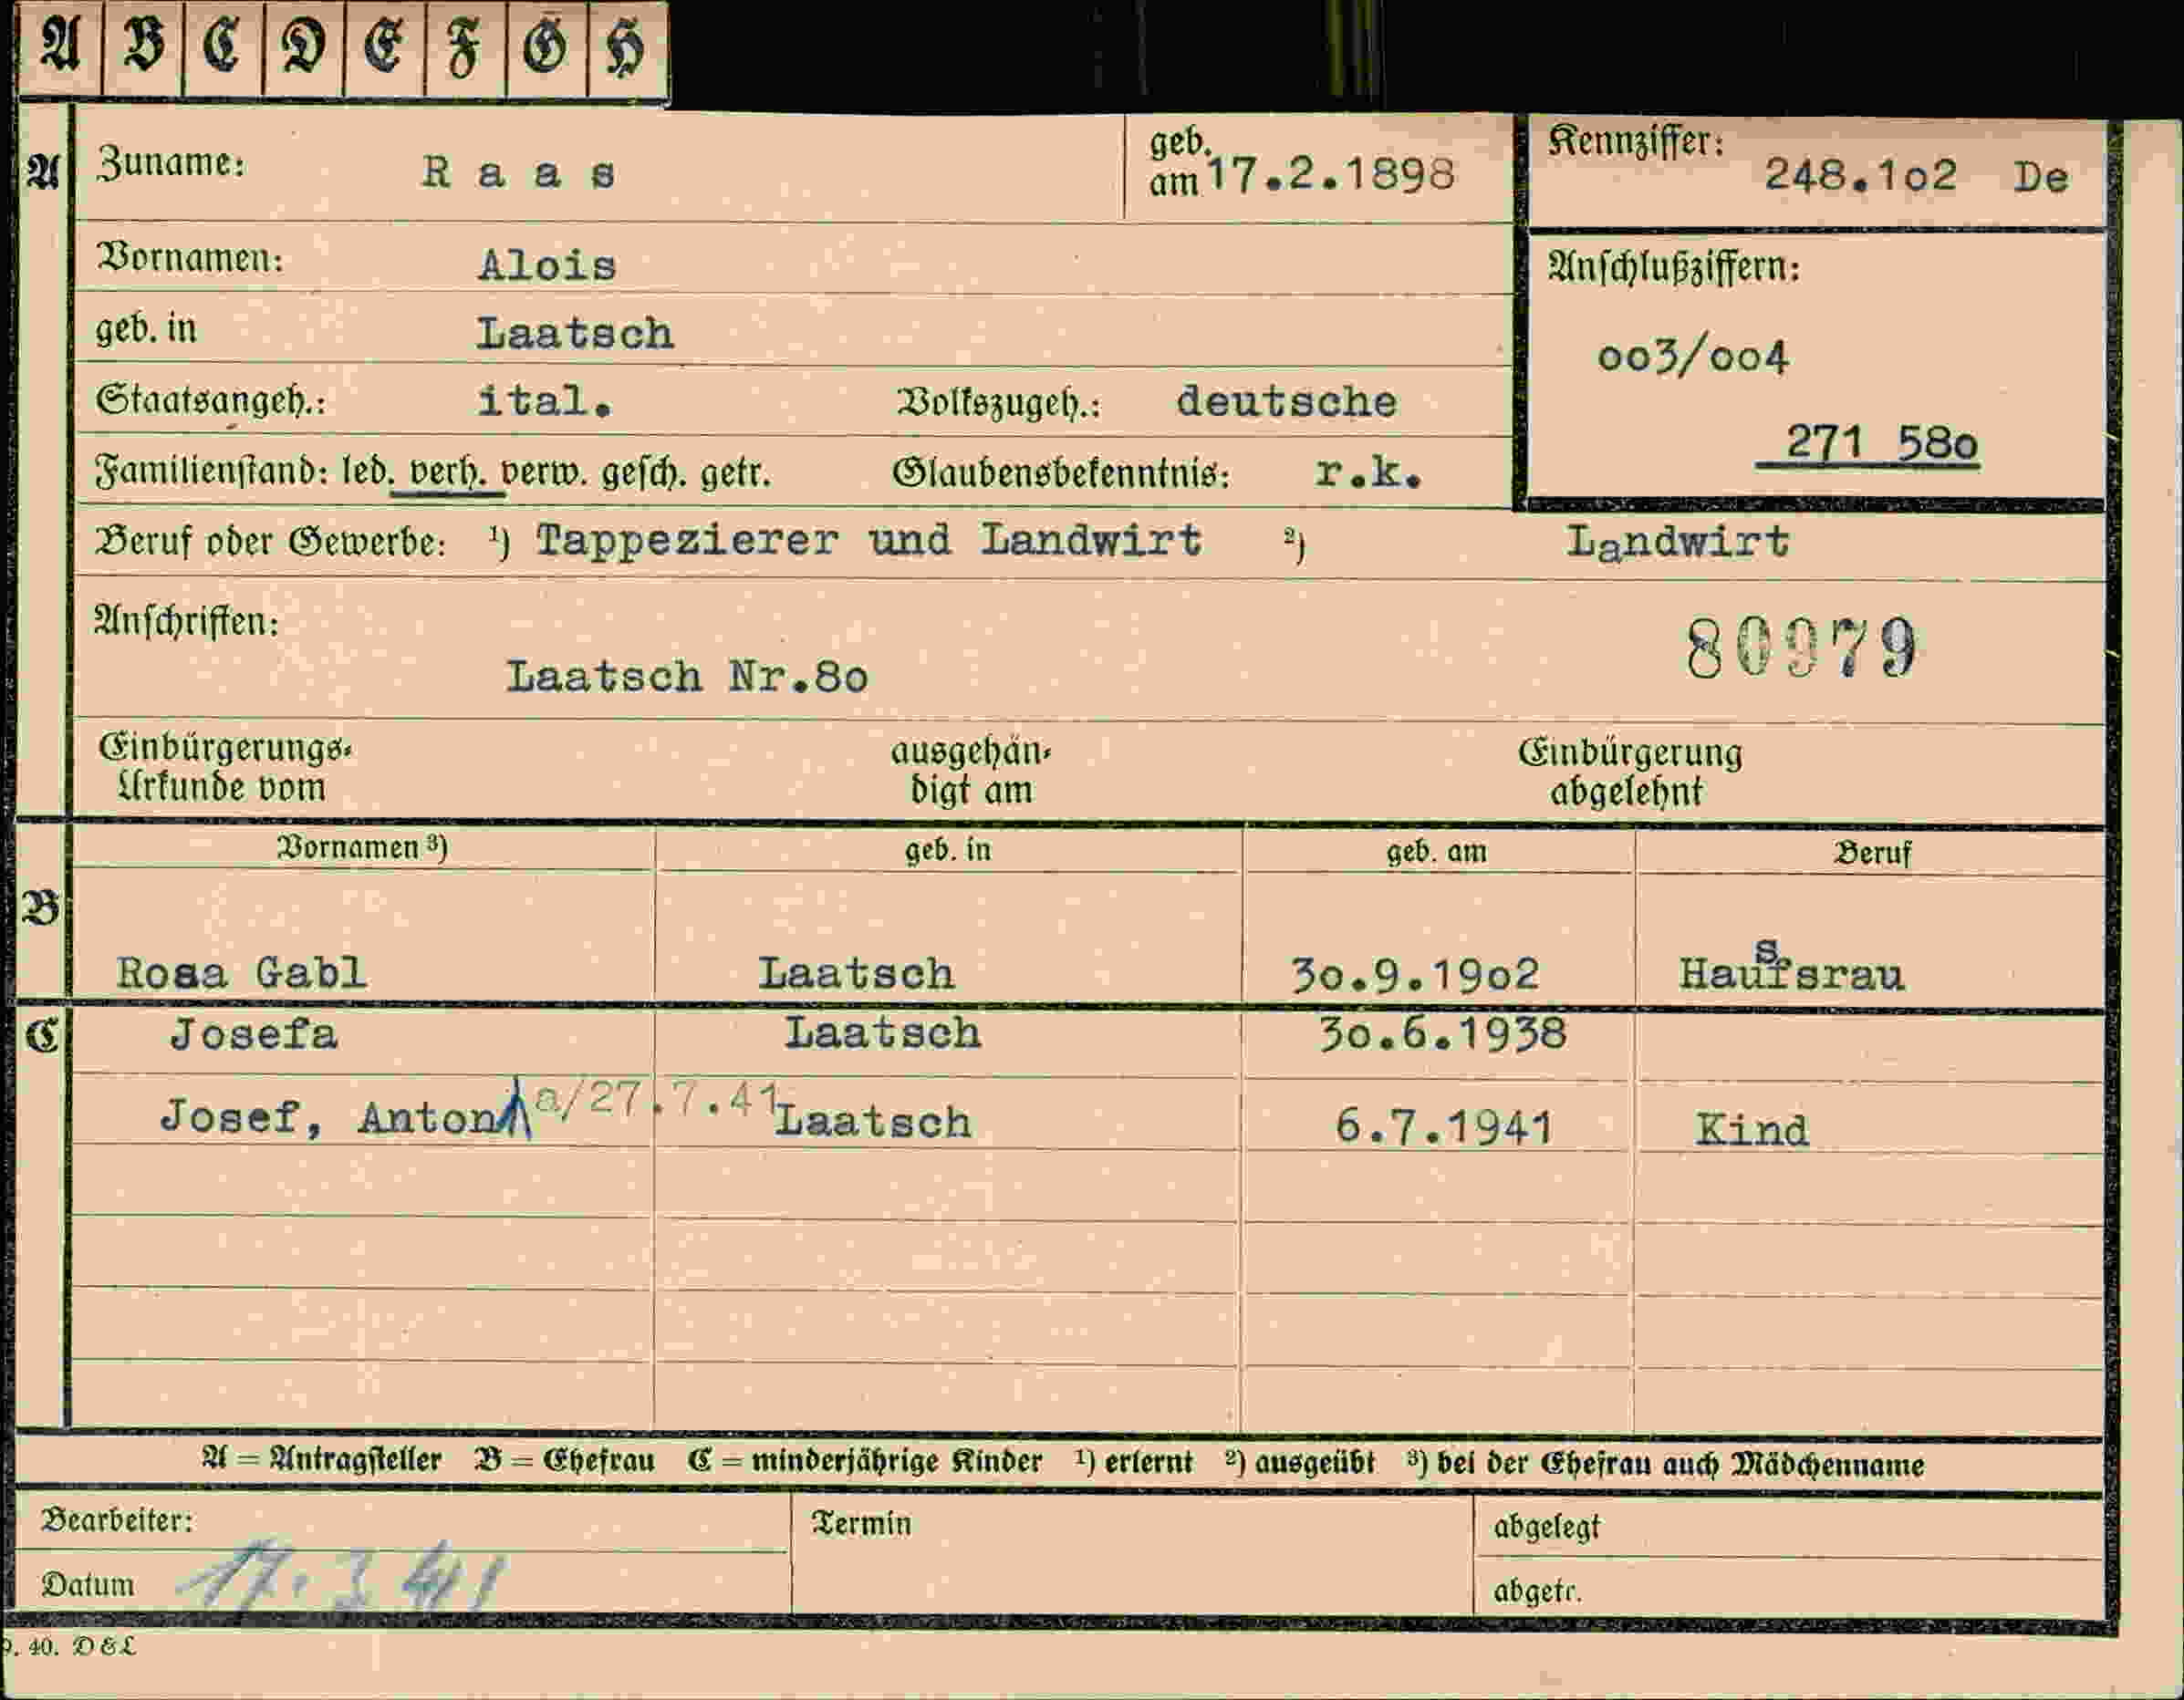 A B C D E F G H
A Zuname: Raas geb. am 17.2.1898 Kennziffer: 248.1o2 De
Vornamen: Alois Anschlußziffern:
geb. in Laatsch oo3/oo4
Staatsangeh.: ital. Volkszugeh.: deutsche 271 58o
Familienstand: led. verh. verw. gesch. getr. Glaubensbekenntnis: r.k.
Beruf oder Gewerbe: ¹) Tappezierer und Landwirt ²) Landwirt
Anschriften: 80979
Laatsch Nr.8o
Einbürgerungs- ausgehän- Einbürgerung
Urkunde vom digt am abgelehnt
Vornamen ³) geb. in geb. am Beruf
B
Rosa Gabl Laatsch 3o.9.19o2 Hausfrau
C Josefa Laatsch 3o.6.1938
Josef, Anton a/27.7.41 Laatsch 6.7.1941 Kind
A = Antragsteller B = Ehefrau C = minderjährige Kinder ¹) erlernt ²) ausgeübt ³) bei der Ehefrau auch Mädchenname
Bearbeiter: Termin abgelegt
Datum 17. 3 41 abgetr.
9. 40. D&L